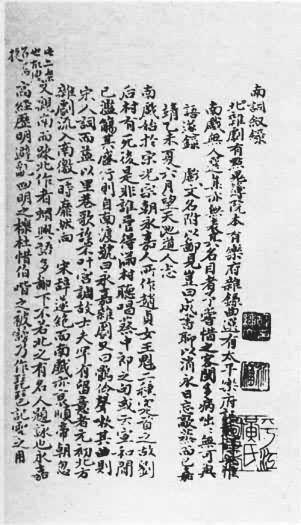 南詞敘錄
北雜劇有點鬼簿院本有樂府雜錄曲選有太平樂府
南戲無人選集亦無表其名目者予嘗惜之客閩多病咄咄無可與
語遂錄諸戲文名附以鄙見豈曰成書聊以消永日忘歊蒸而已嘉
靖己未夏六月望天池道人志
南戲始於宋光宗朝永嘉人所作趙貞女王魁二種實首之故劉
后村有死後是非誰管得滿村聽唱蔡中郎之句或云宣和間
已濫觴其盛行則自南渡號曰永嘉雜劇又曰鶻伶聲嗽其曲則
宋人詞而益以里巷歌謠不叶宮調故士夫罕有留意者元初北方
雜劇流入南徼一時靡然向 宋辭遂絕而南戲亦衰順帝朝忽
又親南而疎北作者蝟興語多鄙下不若北之有名人題詠也永嘉
高經歷明避亂四明之櫟社惜伯喈之被謗乃作琵琶記雪之用
平江
黃氏